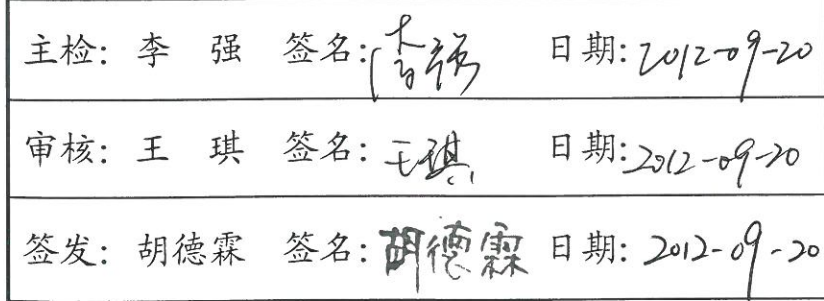 主检: 李 强 签名: 李强 日期: 2012-09-20
审核: 王 琪 签名: 王琪 日期: 2012-09-20
签发: 胡德霖 签名: 胡德霖 日期: 2012-09-20